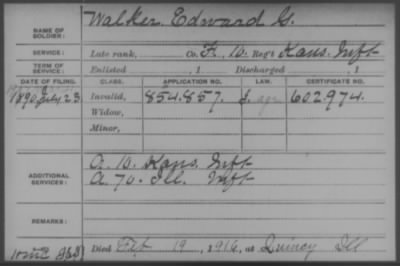 NAME OF SOLDIER: Walker Edward G.
SERVICE: Late rank, Co. F, 10 Reg't Kans. Inft
TERM OF SERVICE: Enlisted , 1 Discharged , 1
DATE OF FILING. CLASS. APPLICATION NO. LAW. CERTIFICATE NO.
1890 July 23. Invalid, 854.857. 602.974.
Widow,
Minor,
ADDITIONAL SERVICES: A. 10. Kans. Inft
A. 70. Ill. Inft
REMARKS:
Died Feb 19, 1916, at Quincy Ill